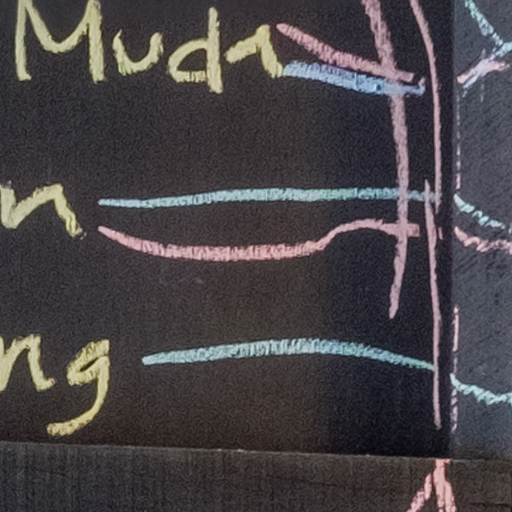 Muda
n
ng